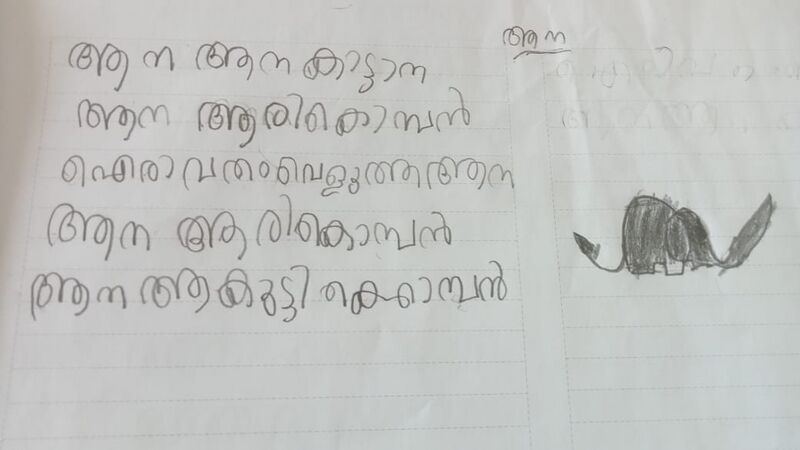 ആന
ആ ന ആന കാട്ടാന
ആന ആരികൊമ്പൻ
ഐരാവതംവെളുത്തആന
ആന ആരികൊമ്പൻ
ആന ആകുട്ടി കൊമ്പൻ